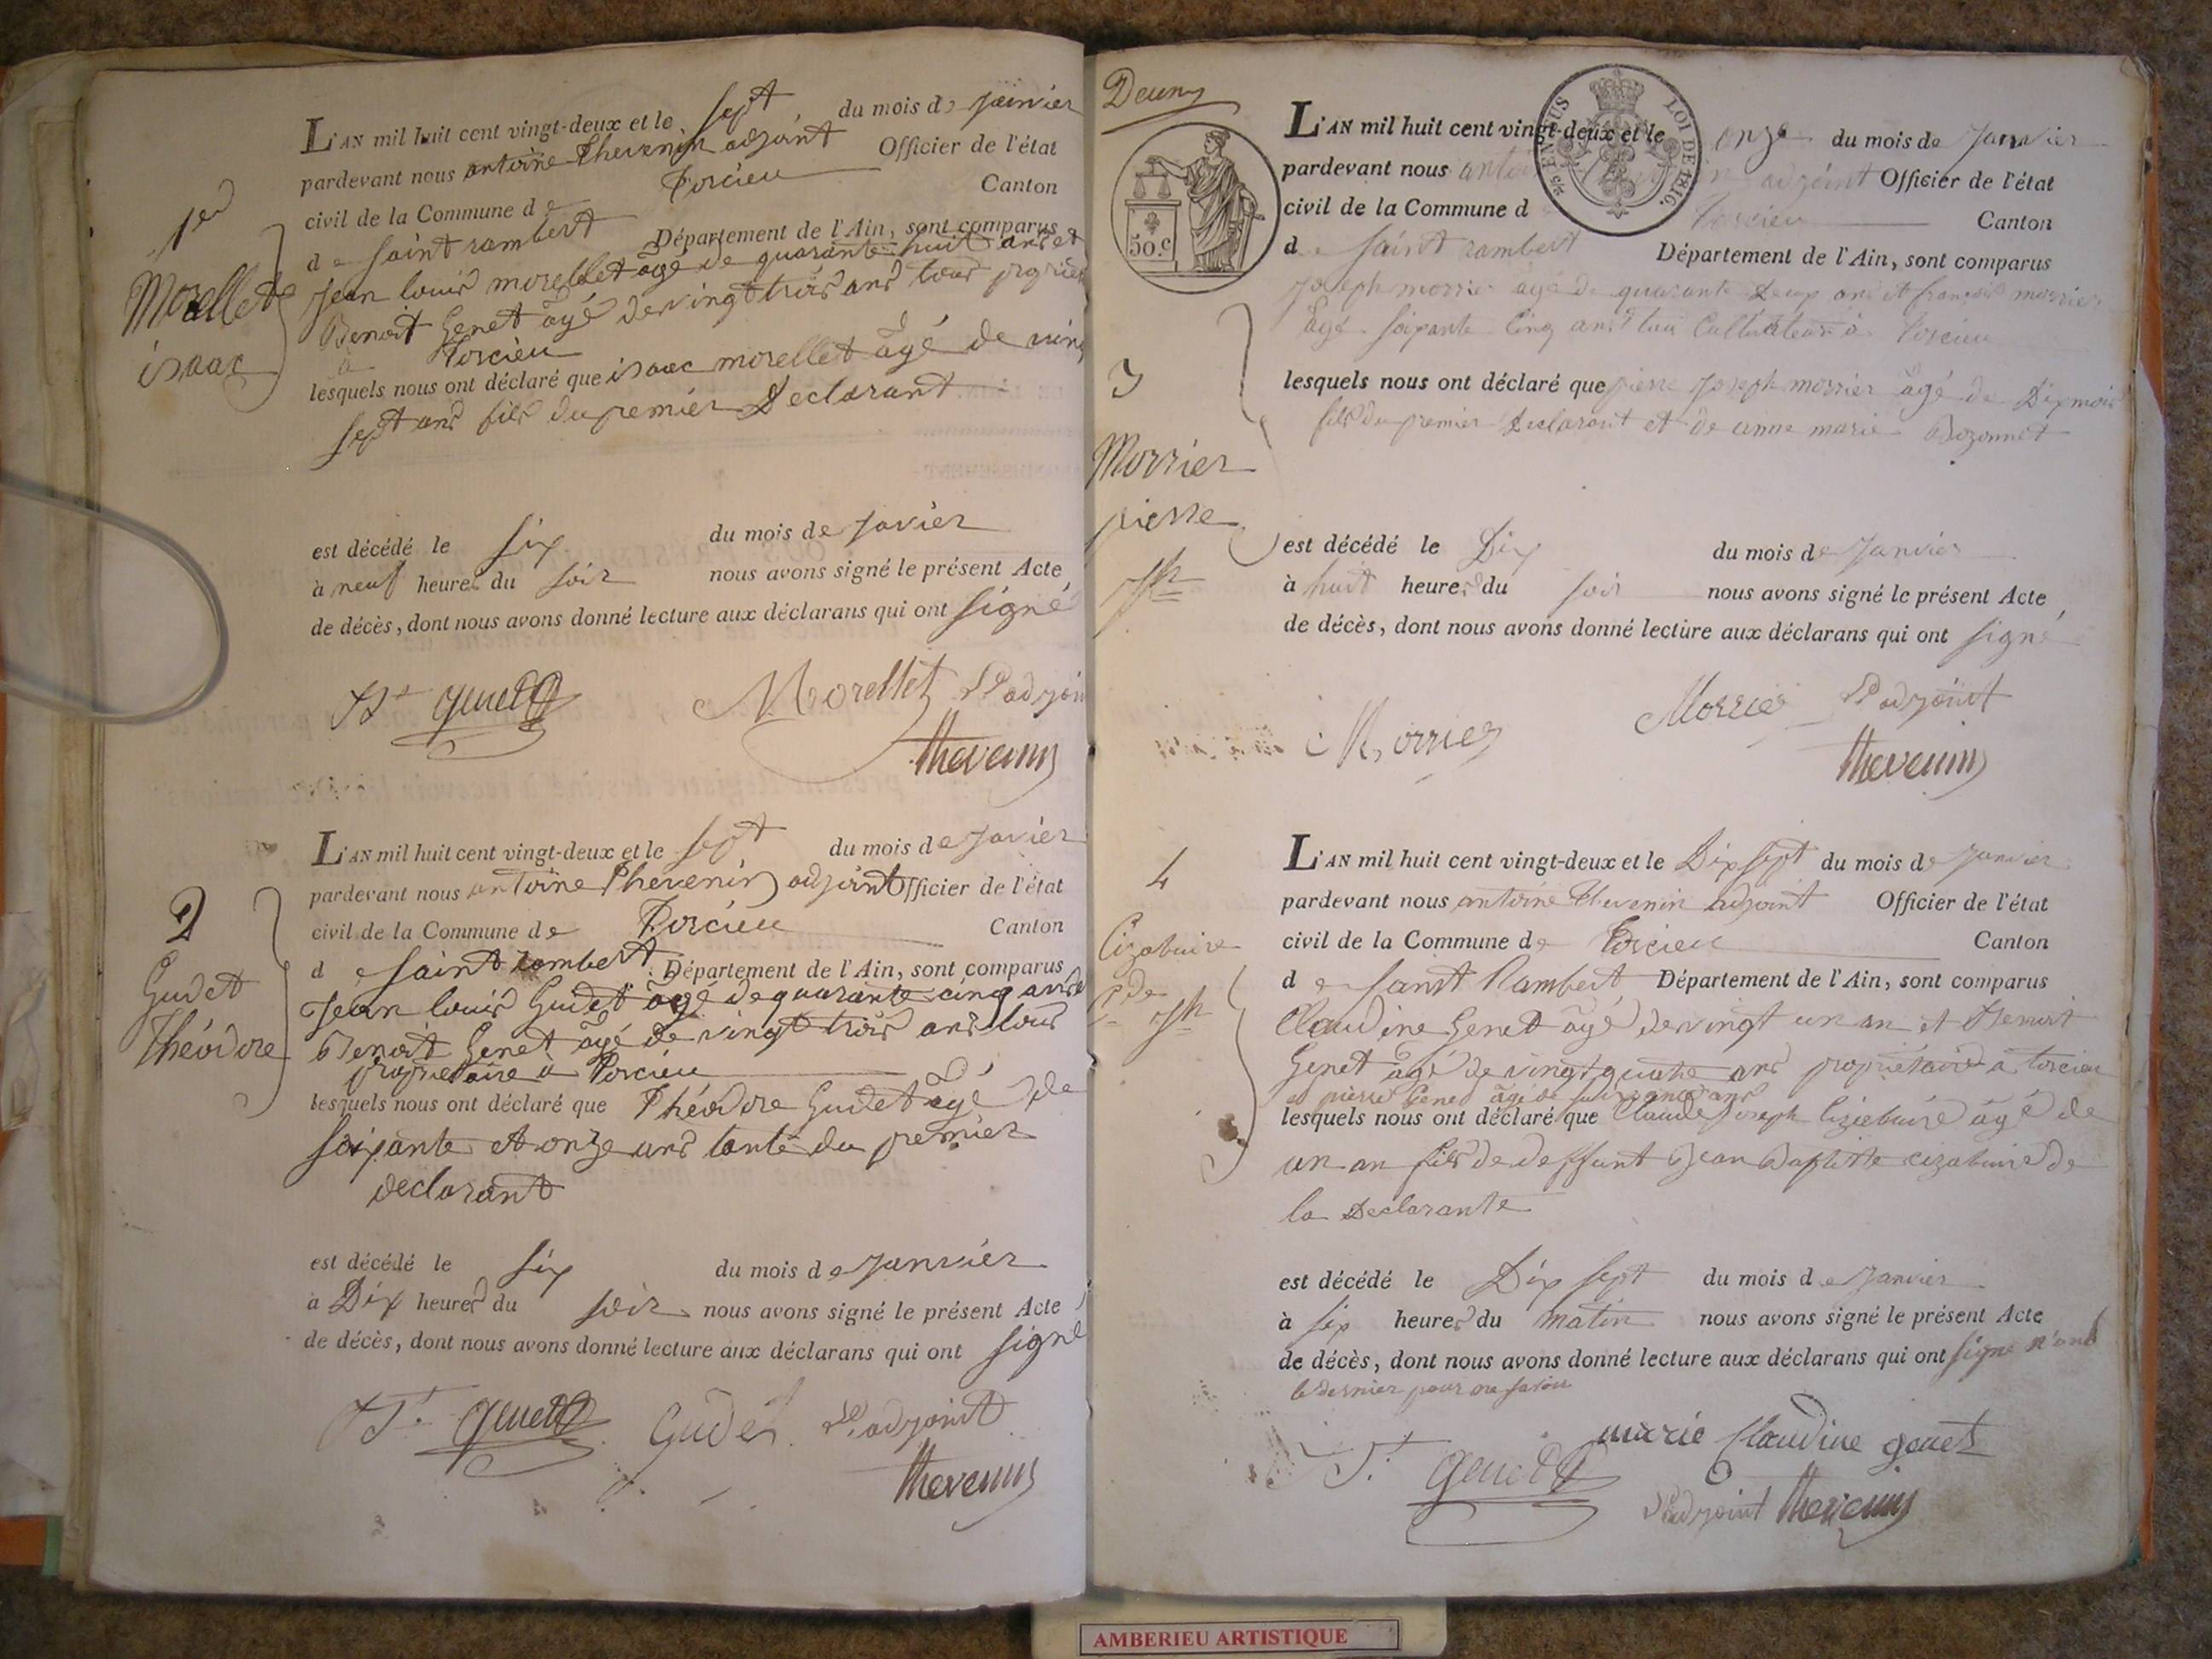 1er
Morellet
isaac
L'AN mil huit cent vingt-deux et le sept du mois de janvier
pardevant nous antoine Thevenin adjoint Officier de l'état
civil de la Commune de Torcieu Canton
de saint rambert Département de l'Ain, sont comparus
jean louis morellet âgé de quarante huit ans et
Benoit Genet âgé de vingt trois ans tous
à Torcieu
lesquels nous ont déclaré que isaac morellet âgé de
sept ans fils du premier Declarant
est décédé le six du mois de javier
à neuf heures du soir nous avons signé le présent Acte
de décès, dont nous avons donné lecture aux déclarans qui ont signé
Bt genet Morellet
thevenin
2
Gudet
Théodore
L'AN mil huit cent vingt-deux et le sept du mois de javier
pardevant nous antoine Thevenin adjoint Officier de l'état
civil de la Commune de Torcieu Canton
de saint rambert Département de l'Ain, sont comparus
Jean louis Gudet âgé de quarante cinq ans
Benoit Genet âgé de vingt trois ans tous
proprietaire à Torcieu
lesquels nous ont déclaré que Théodore Gudet âgé de
soixante et onze ans tante du premier
declarant
est décédé le six du mois de janvier
à Dix heures du soir nous avons signé le présent Acte
de décès, dont nous avons donné lecture aux déclarans qui ont signé
Bt genet Gudet L'adjoint
thevenin
Deux
50 c.
TIMBRE
LOI DE 1816.
3
Morrier
pierre
jph
L'AN mil huit cent vingt-deux et le onze du mois de janvier
pardevant nous antoine Thevenin adjoint Officier de l'état
civil de la Commune de Torcieu Canton
de saint rambert Département de l'Ain, sont comparus
joseph morrier âgé de quarante Deux ans et françois morrier
âgé soixante cinq ans tous Cultivateur à Torcieu
lesquels nous ont déclaré que pierre joseph morrier âgé de Dix mois
fils du premier Declarant et de anne marie Bozonnet
est décédé le Dix du mois de janvier
à huit heures du soir nous avons signé le présent Acte
de décès, dont nous avons donné lecture aux déclarans qui ont signé
Morrier Morrier L'adjoint
thevenin
4
jph
L'AN mil huit cent vingt-deux et le Dix sept du mois de janvier
pardevant nous antoine Thevenin adjoint Officier de l'état
civil de la Commune de Torcieu Canton
de saint Rambert Département de l'Ain, sont comparus
Claudine Genet âgé de vingt un an et Benoit
Genet âgé de vingt quatre ans proprietaire à torcieu
et pierre Genet âgé de ans
lesquels nous ont déclaré que Claude Joseph âgé de
un an fils de deffunt Jean Baptiste de
la Declarante
est décédé le Dix sept du mois de janvier
à six heures du matin nous avons signé le présent Acte
de décès, dont nous avons donné lecture aux déclarans qui ont signé
le dernier pour ne savoir
marie Claudine genet
Bt genet
L'adjoint thevenin
AMBERIEU ARTISTIQUE